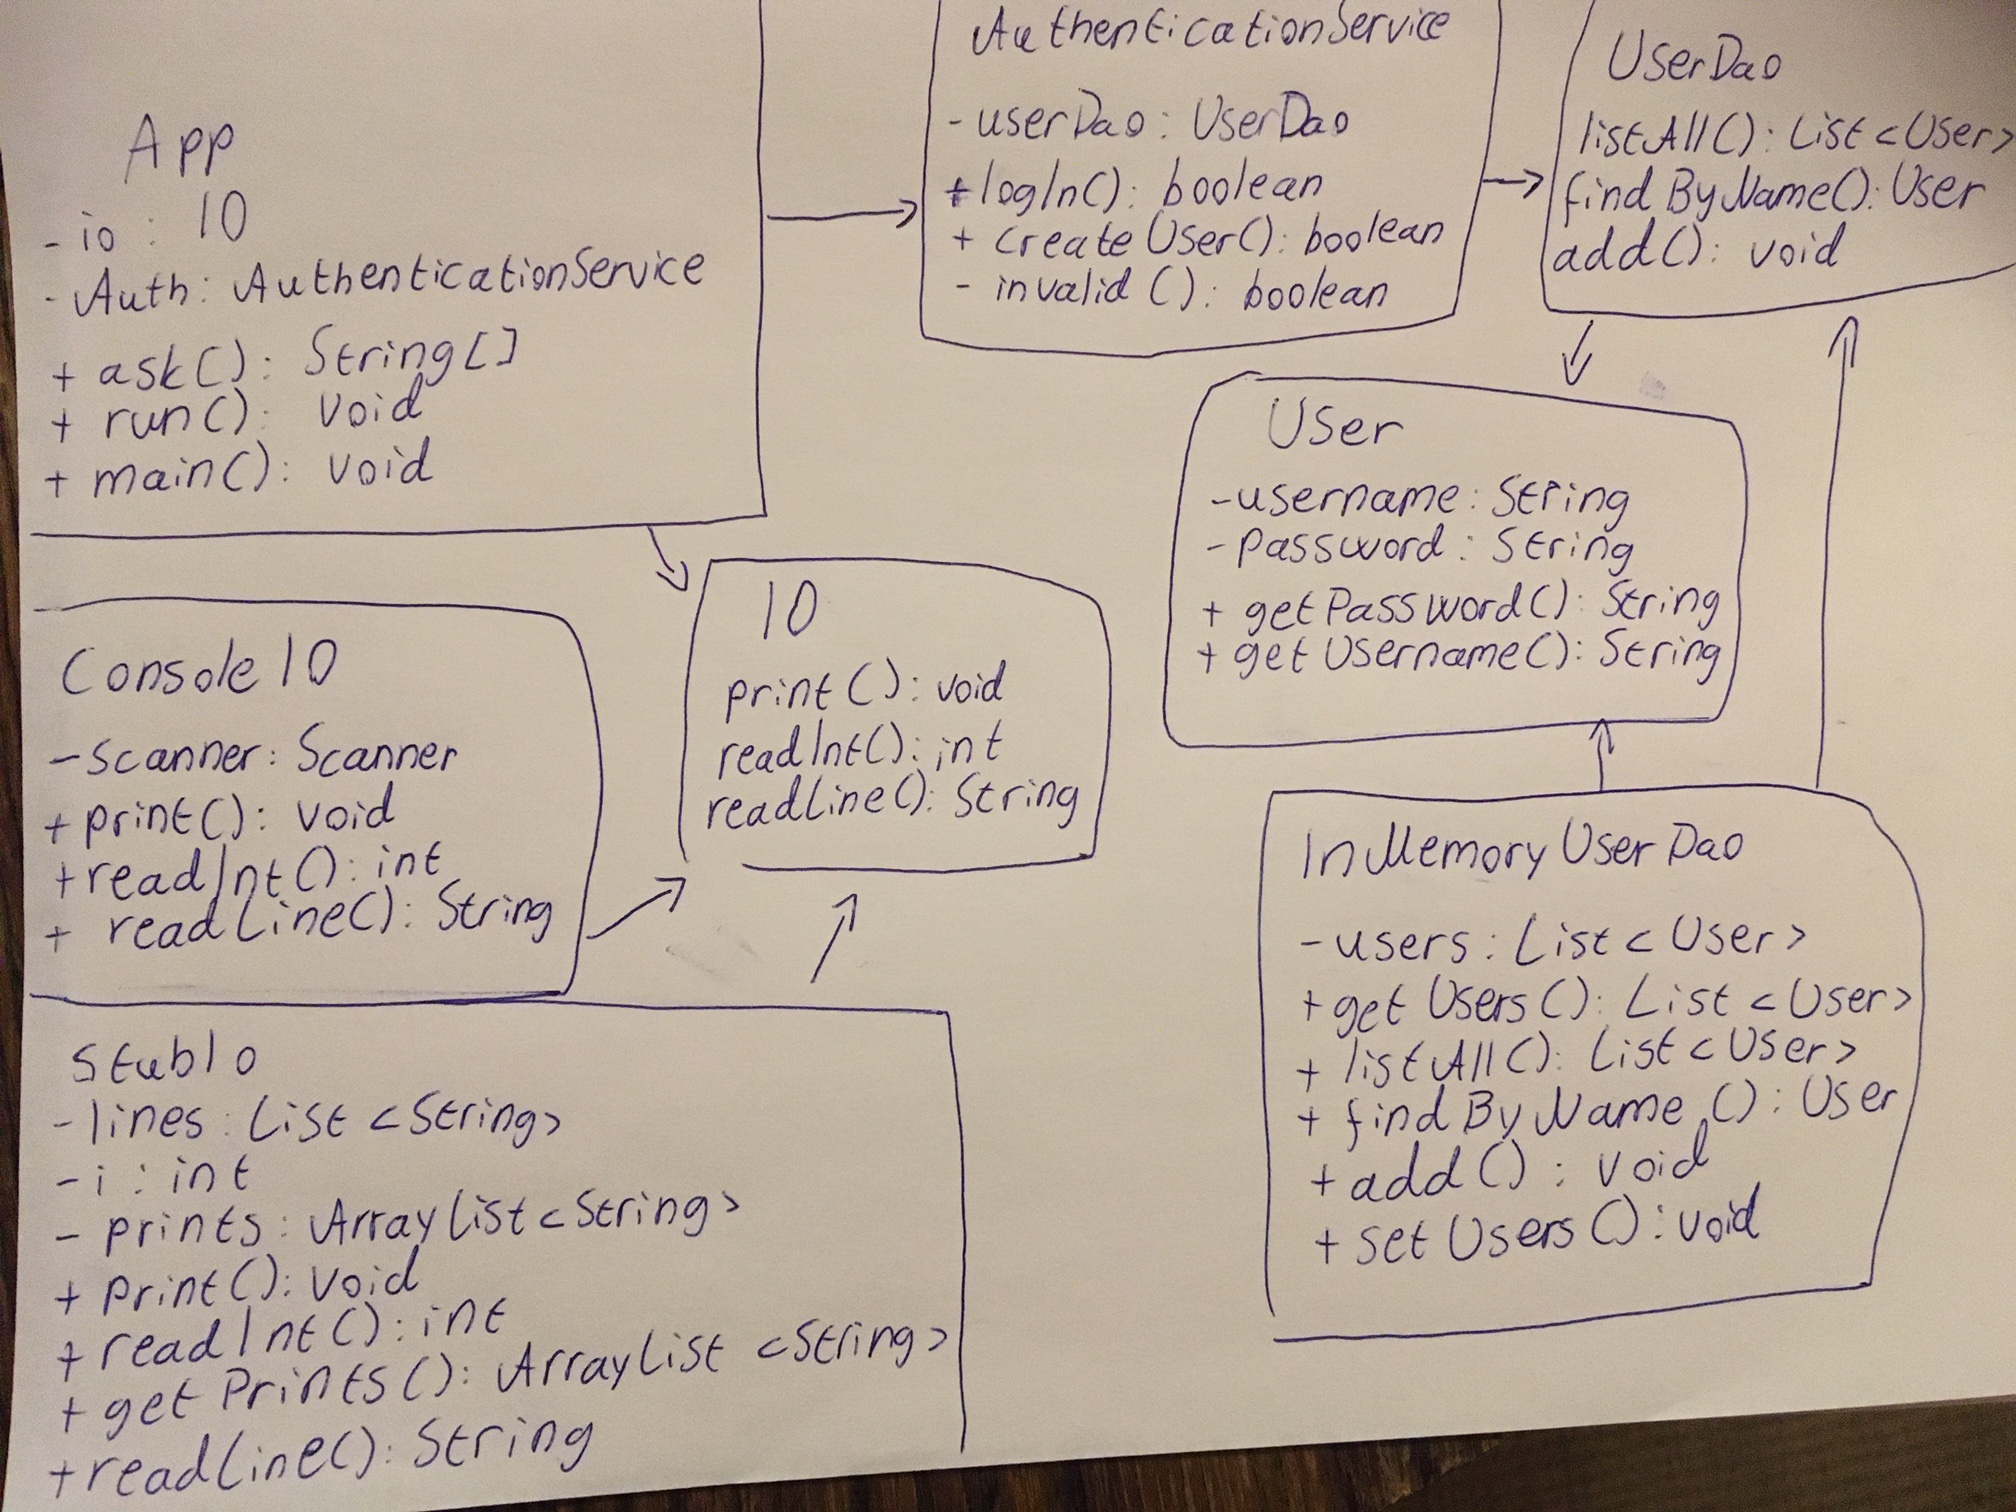 App
- io : IO
- Auth: AuthenticationService
+ ask(): String[]
+ run(): void
+ main(): void
AuthenticationService
- userDao: UserDao
+ logIn(): boolean
+ createUser(): boolean
- invalid(): boolean
UserDao
listAll(): List<User>
findByName(): User
add(): void
User
- username: String
- Password: String
+ getPassword(): String
+ getUsername(): String
ConsoleIO
- scanner: Scanner
+ print(): void
+ readInt(): int
+ readLine(): String
IO
print(): void
readInt(): int
readLine(): String
InMemoryUserDao
- users: List<User>
+ getUsers(): List<User>
+ listAll(): List<User>
+ findByName(): User
+ add(): void
+ setUsers(): void
StubIo
- lines: List<String>
- i: int
- prints: ArrayList<String>
+ print(): void
+ readInt(): int
+ getPrints(): ArrayList<String>
+ readLine(): String